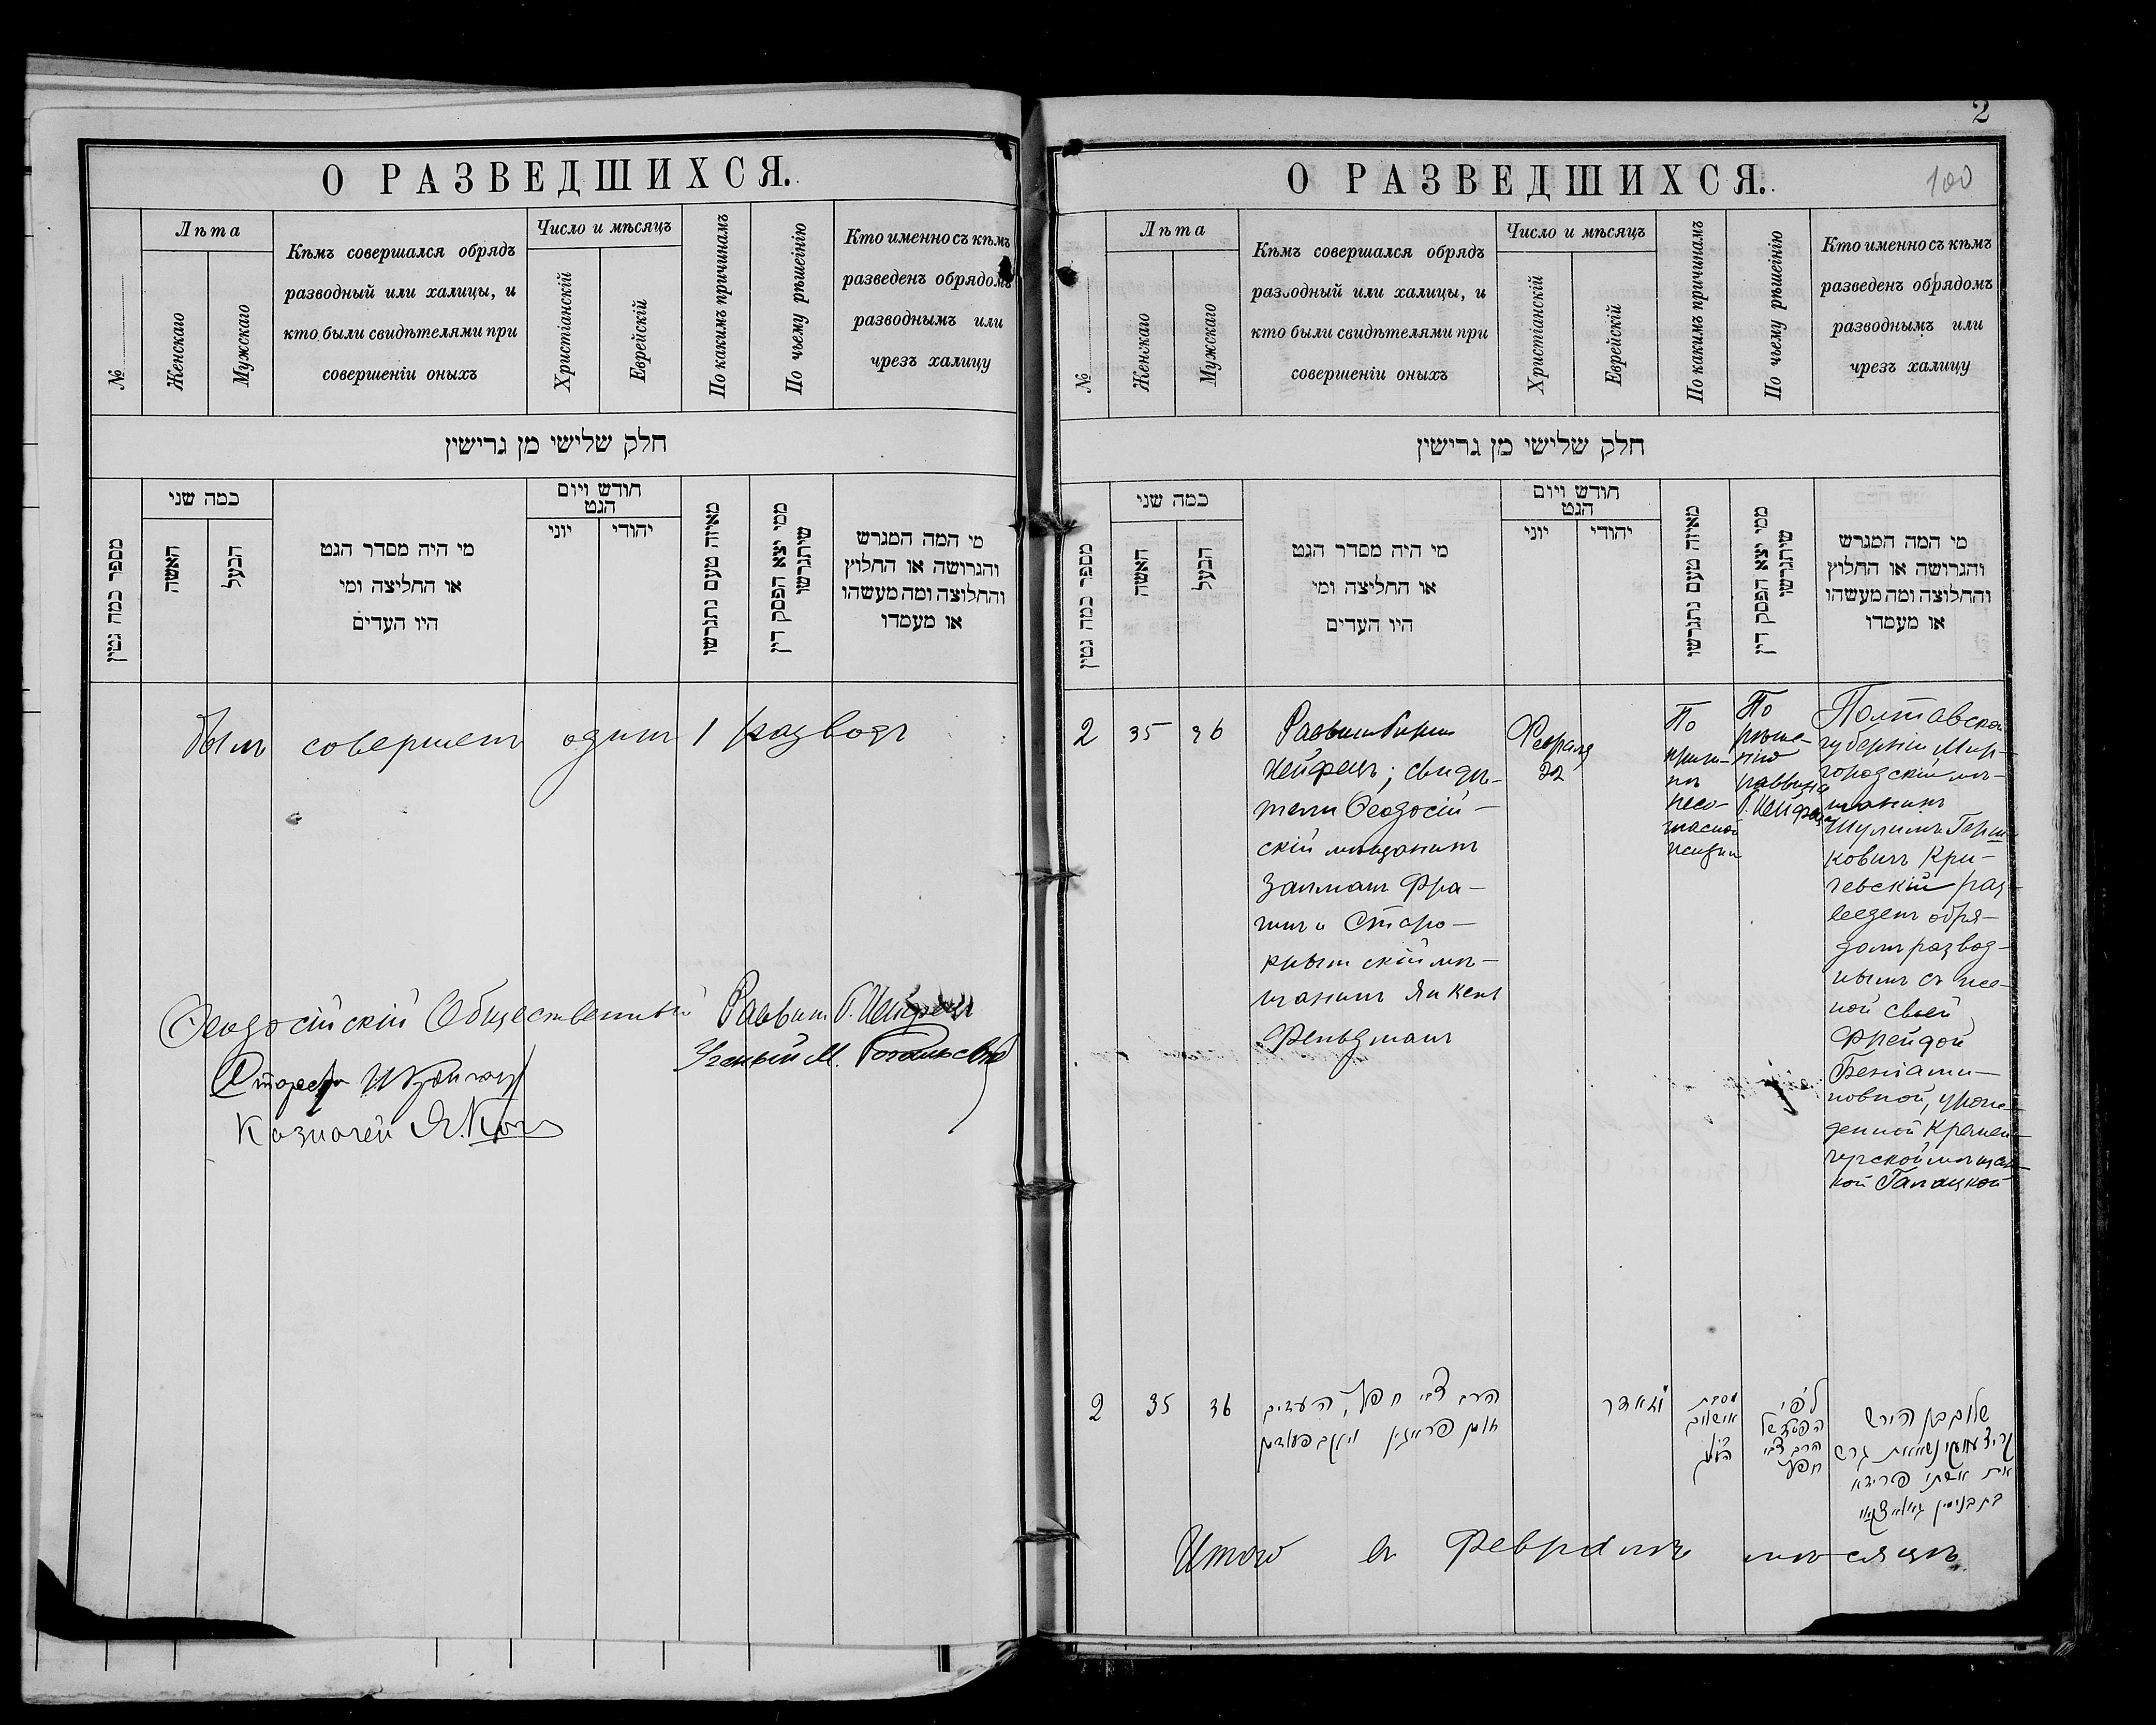 О РАЗВЕДШИХСЯ.
№
Лѣта
Женскаго
Мужскаго
Кѣмъ совершался обрядъ
разводный или халицы, и
кто были свидѣтелями при
совершеніи оныхъ
Число и мѣсяцъ
Христіанскій
Еврейскій
По какимъ причинамъ
По чьему рѣшенію
Кто именно съ кѣмъ
разведенъ обрядомъ
разводнымъ или
чрезъ халицу
חלק שלישי מן גרישין
מספר כמה גטין
כמה שני
האשה
הבעל
מי היה מסדר הגט
או החליצה ומי
היו העדים
חודש ויום
הגט
יוני
יהודי
מאיזה טעם נתגרשו
ממי יצא הפסק דין
שיתגרשו
מי המה המגרש
והגרושה או החלוץ
והחלוצה ומה מעשהו
או מעמדו
былъ совершенъ одинъ 1 разводъ
Ѳеодосійскій Общественный Раввинъ
Ученый М.
Староста
Казначей Я.
2
100
О РАЗВЕДШИХСЯ.
№
Лѣта
Женскаго
Мужскаго
Кѣмъ совершался обрядъ
разводный или халицы, и
кто были свидѣтелями при
совершеніи оныхъ
Число и мѣсяцъ
Христіанскій
Еврейскій
По какимъ причинамъ
По чьему рѣшенію
Кто именно съ кѣмъ
разведенъ обрядомъ
разводнымъ или
чрезъ халицу
חלק שלישי מן גרישין
מספר כמה גטין
כמה שני
האשה
הבעל
מי היה מסדר הגט
או החליצה ומי
היו העדים
חודש ויום
הגט
יוני
יהודי
מאיזה טעם נתגרשו
ממי יצא הפסק דין
שיתגרשו
מי המה המגרש
והגרושה או החלוץ
והחלוצה ומה מעשהו
או מעמדו
2
35
36
Раввинъ
свидѣ-
тели Ѳеодосій-
скій мѣщанинъ
Залманъ Фра-
и Старо-
крымскій мѣ-
щанинъ
Фельдманъ
Февраля
22
По
причи-
нѣ
несо-
гласной
жизни
По
рѣше-
нію
раввина
Полтавской
губерніи, Мир-
городскій мѣ-
щанинъ
Шулимъ Герш-
ковичъ Кри-
чевскій раз-
веденъ обря-
домъ развод-
нымъ съ же-
ной своей
Фрейдой
Беніами-
новной, урож-
денной Кремен-
чугской мѣщан-
кой
2
35
36
הרב צבי חפץ, העדים
אדר
מסבת
לפי
הרב צבי
חפץ
שלום בן הירש
גרש
את אשתו פריידא
בת בנימין
Итого въ Февралѣ мѣсяцѣ